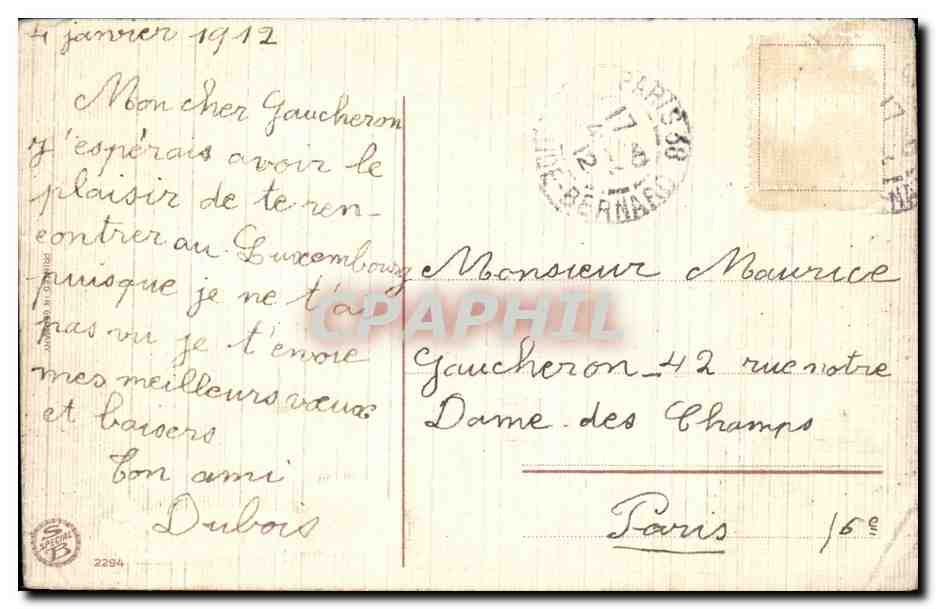 4 janvier 1912
Mon cher Gaucheron
J'espérais avoir le
plaisir de te ren-
contrer au Luxembourg
puisque je ne t'ai
pas vu je t'envoie
mes meilleurs vœux
et baisers
Ton ami
Dubois
PARIS 38
17
4
12
BERNARD
Monsieur Maurice
Gaucheron - 42 rue notre
Dame des Champs
Paris 6e
PRINTED IN GERMANY
CPAPHIL
S
SPECIAL
B
2294